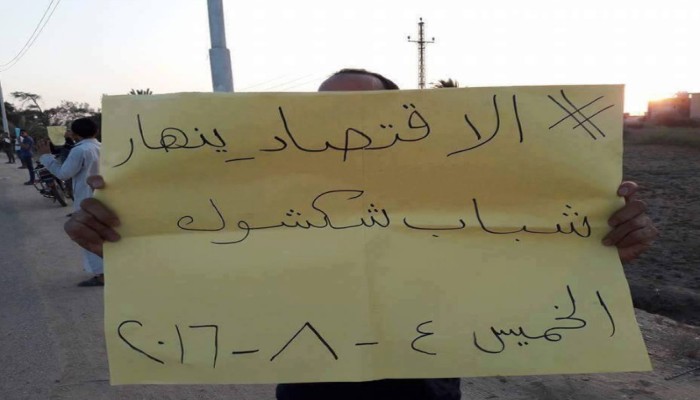 # الاقتصاد_ينهار
شباب شكشوك
الخميس ٤ - ٨ - ٢٠١٦